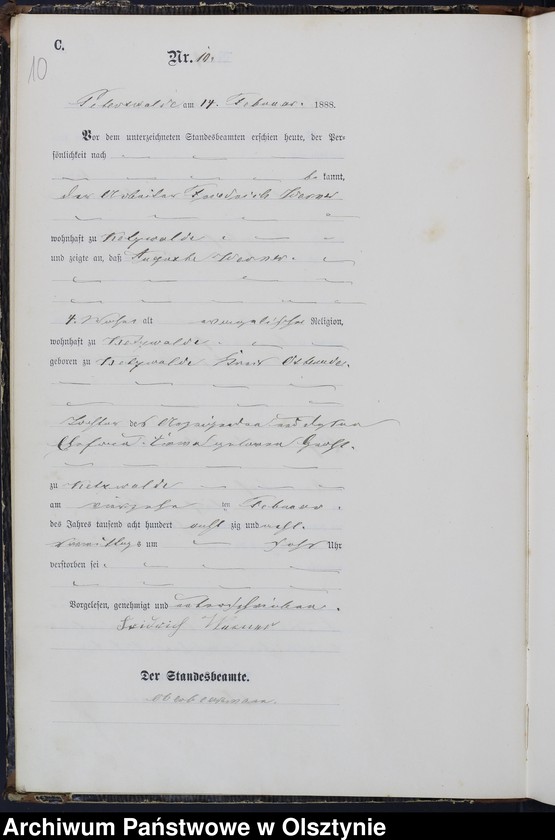 C.
10
Nr. 10.
Peterswalde am 14. Februar. 1888.
Vor dem unterzeichneten Standesbeamten erschien heute, der Per=
sönlichkeit nach
be kannt,
der Arbeiter Friedrich Werner
wohnhaft zu
und zeigte an, daß Auguste Werner.
4. Wochen alt evangelischer Religion,
wohnhaft zu
geboren zu Kreis Osterode.
Tochter des Anzeigenden und dessen
geborene
zu
am vierzehn ten Februar.
des Jahres tausend acht hundert acht zig und acht.
Vormittag s um Uhr
verstorben sei
Vorgelesen, genehmigt und unterschrieben.
Friedrich Werner
Der Standesbeamte.
Archiwum Państwowe w Olsztynie